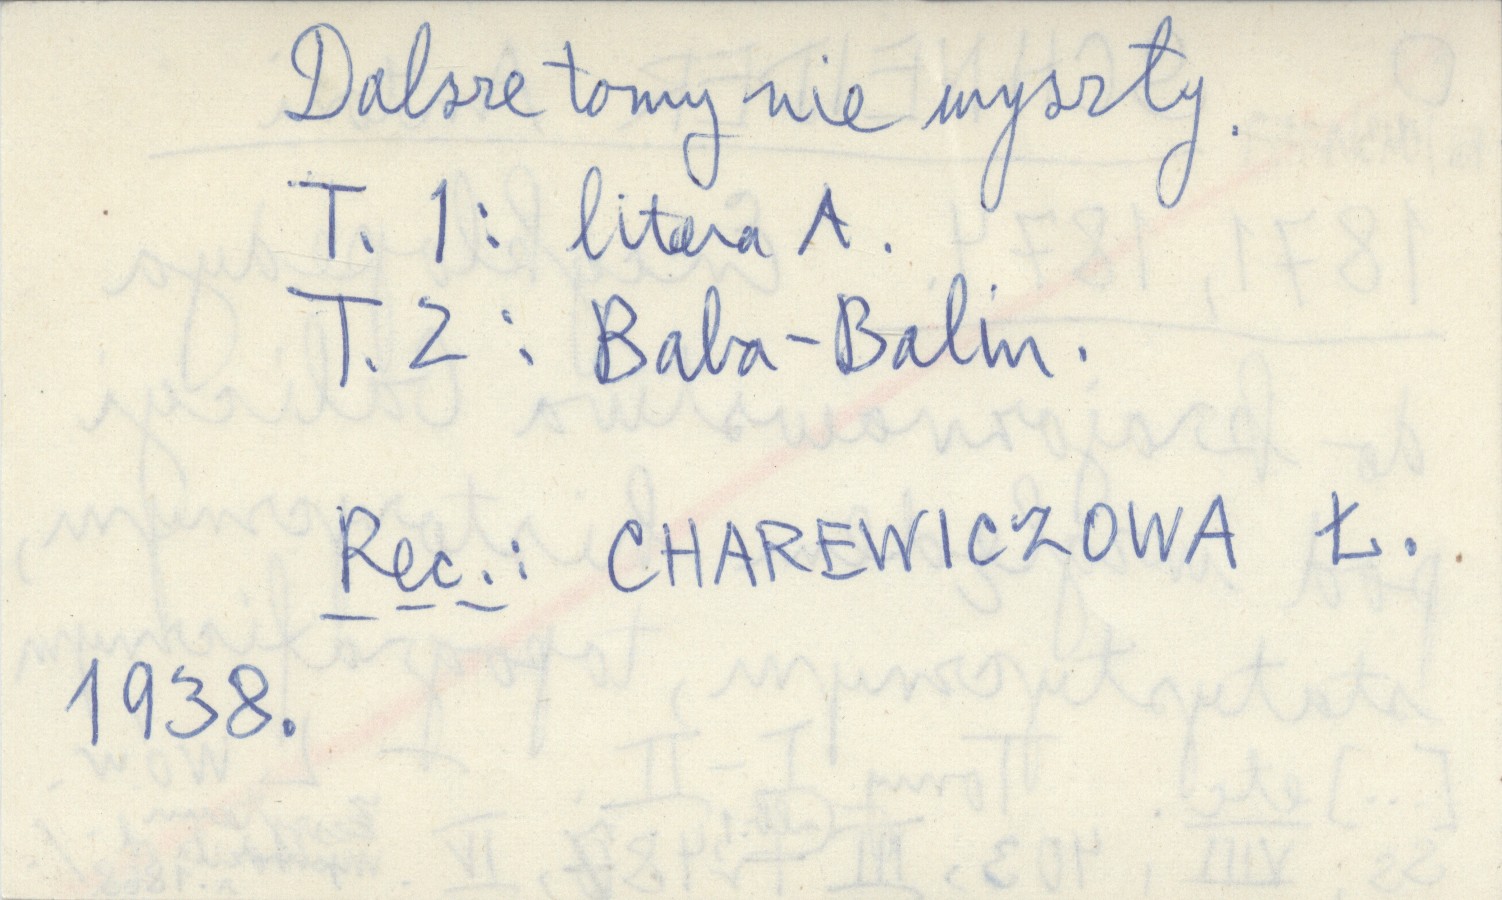 Dalsze tomy nie wyszły.
T. 1: litera A.
T. 2: Baba-Balin.
Rec.: CHAREWICZOWA Ł.
1938.